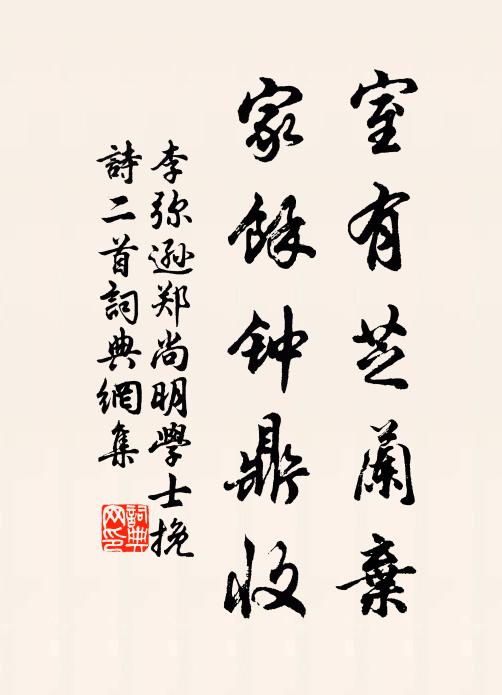 室有芝蘭棄
家餘钟鼎收
李弥遜郑尚明學士挽
詩二首詞典網集
詞典
网印